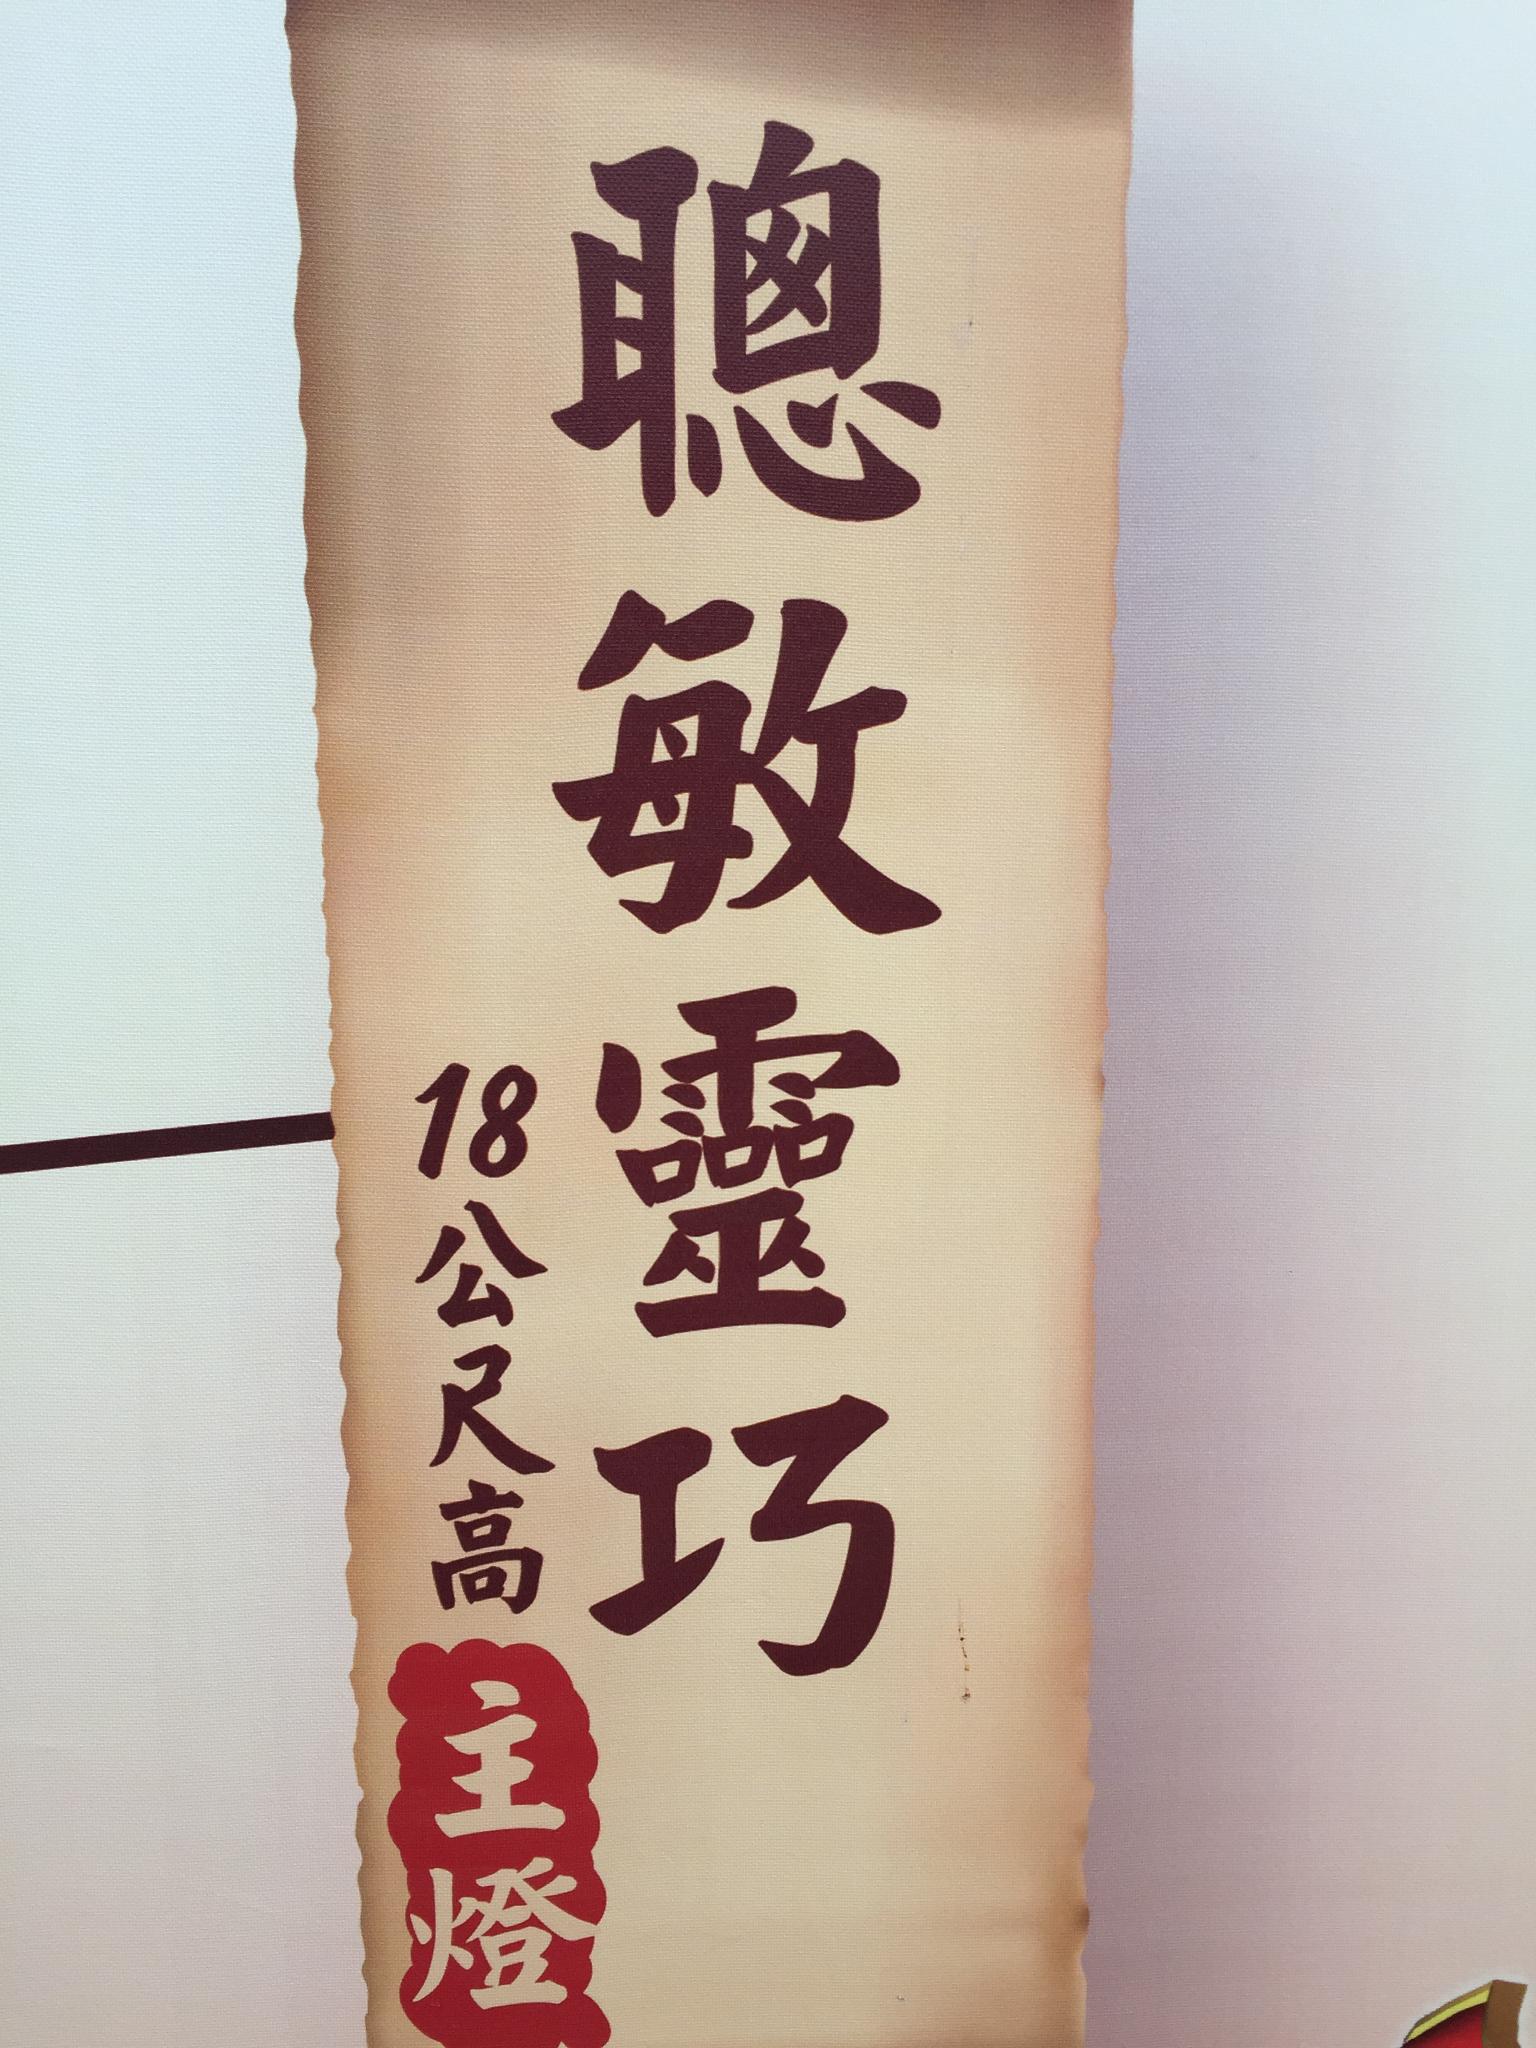 聰敏靈巧
18公尺高
主燈